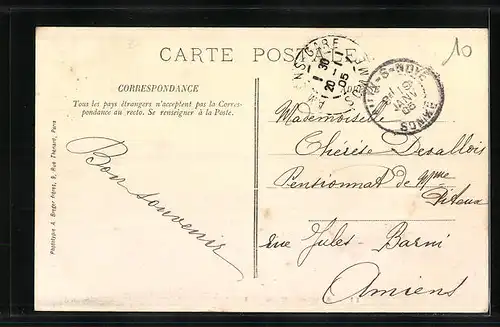 10
CARTE POSTALE
CORRESPONDANCE
Tous les pays étrangers n'acceptent pas la Corres-
pondance au recto. Se renseigner à la Poste.
Bon souvenir
Phototypie A. Breger frères, 9, Rue Thénard, Paris
GARE
1 30
20 - 1
05
SOMME
Mademoiselle
Thérèse Devallois
Pensionnat de Mme
rue Jules - Barni
Amiens